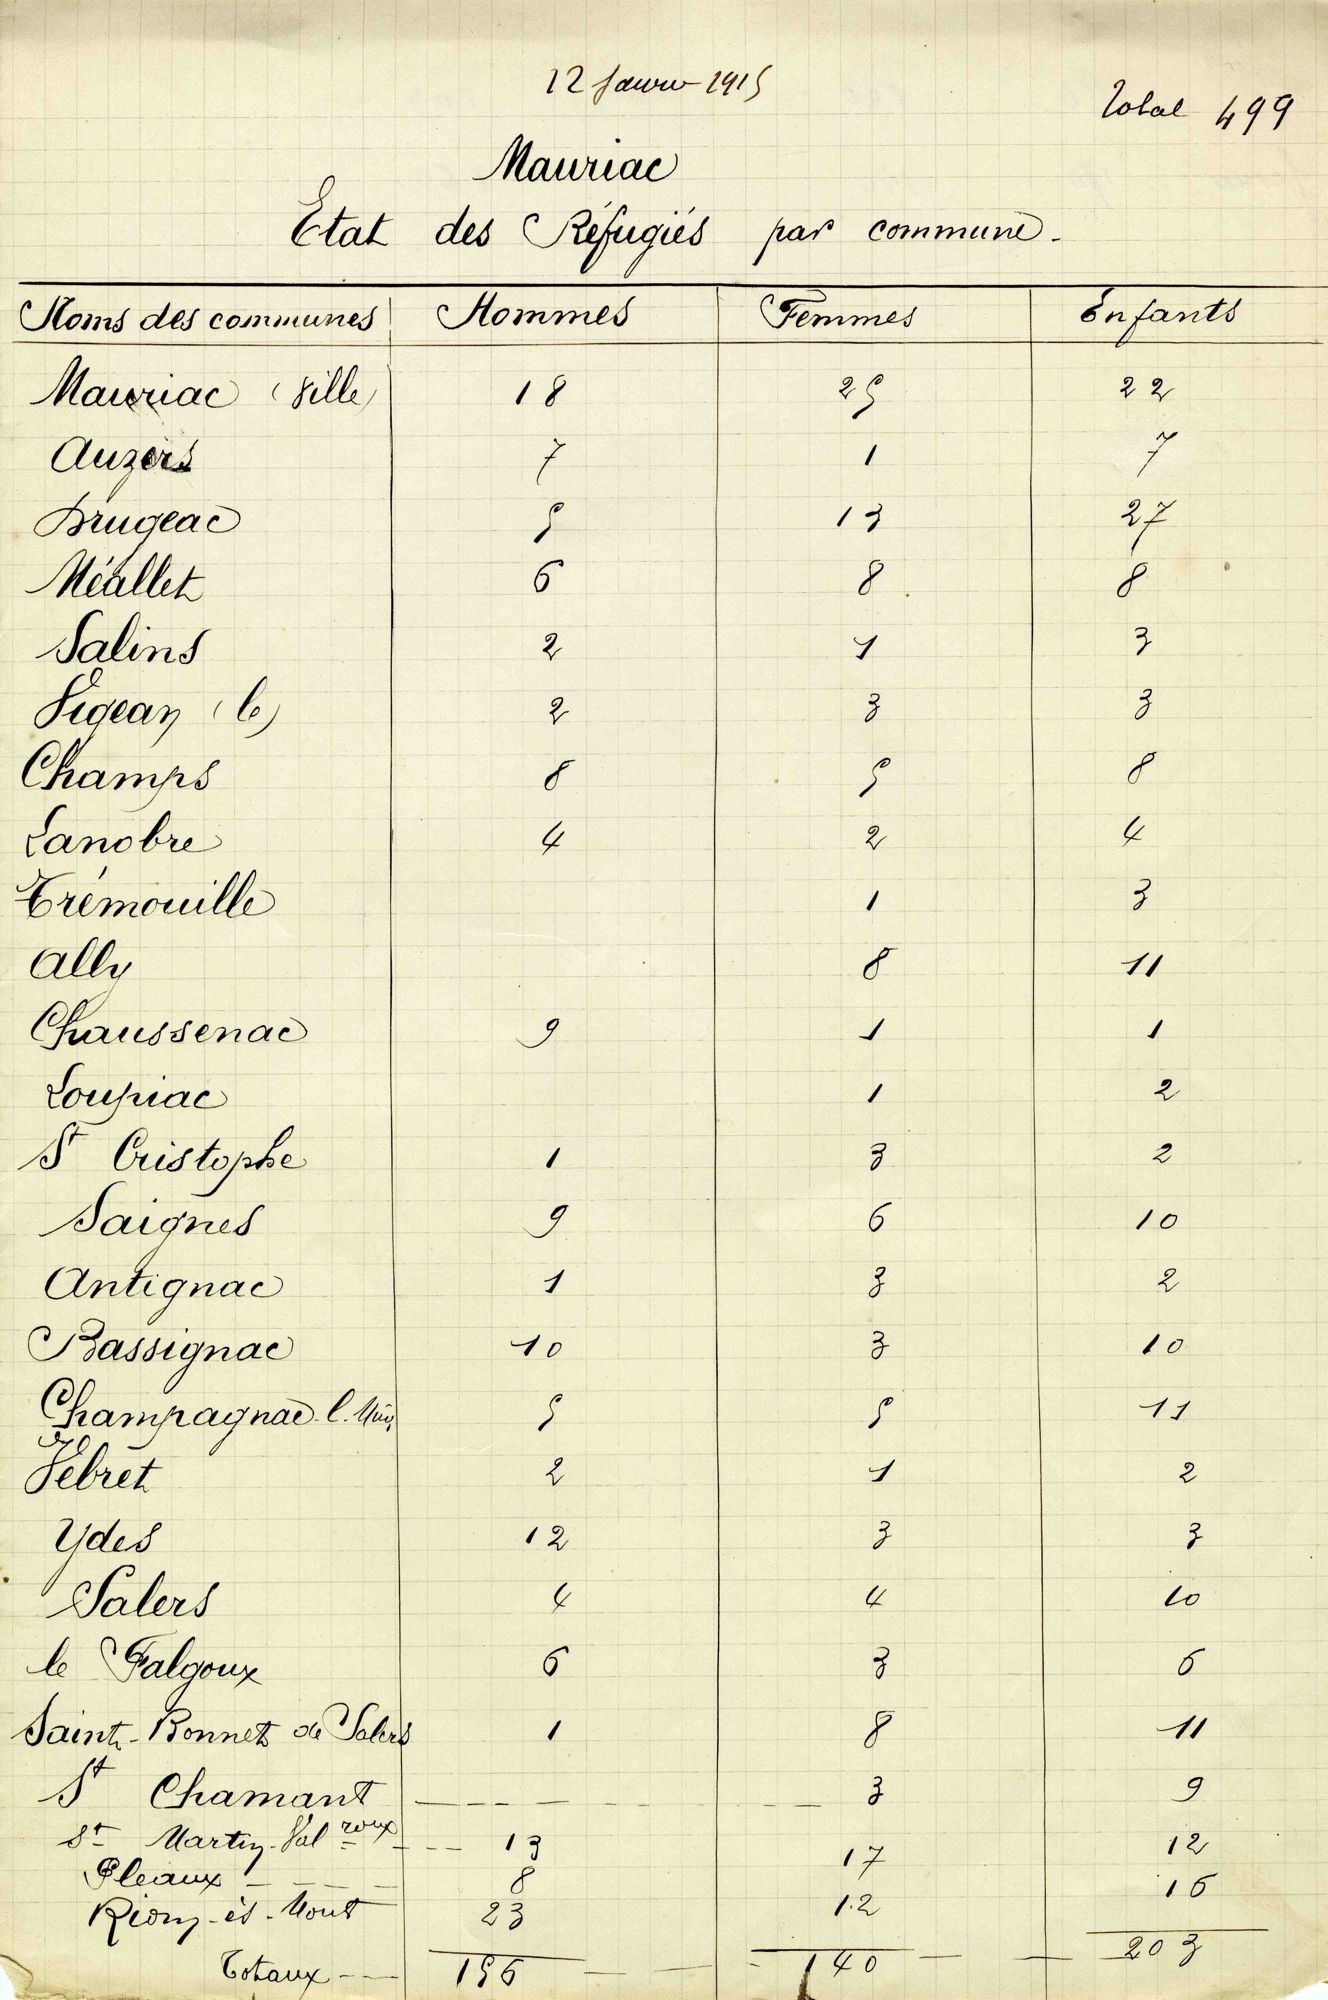 12 Janvier 1915
Total 499
Mauriac
Etat des Réfugiés par commune.
Noms des communes Hommes Femmes Enfants
Mauriac (Ville) 18 25 22
Auzers 7 1 7
Drugeac 5 13 27
Méallet 6 8 8
Salins 2 1 3
Vigean (le) 2 3 3
Champs 8 5 8
Lanobre 4 2 4
Trémouille 1 3
Ally 8 11
Chaussenac 9 1 1
Loupiac 1 2
St Cristophe 1 3 2
Saignes 9 6 10
Antignac 1 3 2
Bassignac 10 3 10
Champagnac l. Min. 5 5 11
Vebret 2 1 2
Ydes 12 3 3
Salers 4 4 10
le Falgoux 6 3 6
Saint-Bonnet de Salers 1 8 11
St Chamant 3 9
St Martin-Valroux 13 17 12
Pleaux 8 12 16
Riom-ès-Mont 23
Totaux 156 140 203